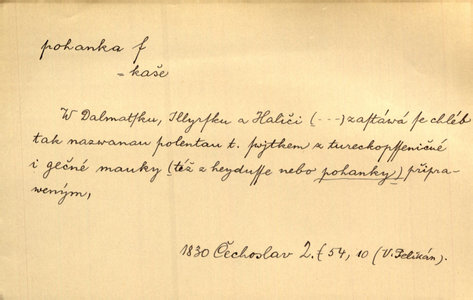 pohanka f
= kaše
W Dalmatsku, Illyrsku a Haliči (---) zastáwá se chléb
tak nazwanau polentau t. pjtkem z tureckopsseničné
i gečné mauky (též z heydusse nebo pohanky) připra-
weným,
1830 Čechoslav 2. t 54, 10 (V. Pelikán).